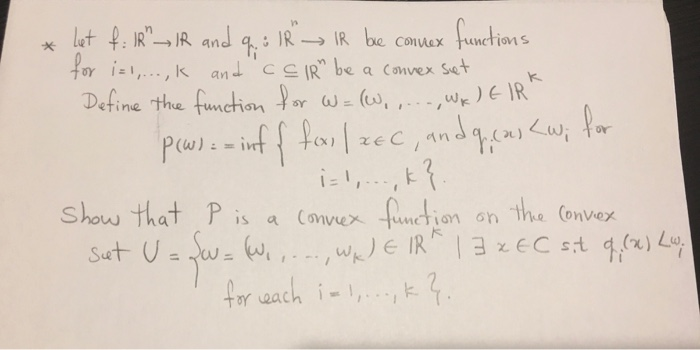 * Let f: ℝⁿ → ℝ and qᵢ : ℝⁿ → ℝ be convex functions
for i=1,..., k and C ⊆ ℝⁿ be a convex set
Define the function for ω = (ω₁, ..., ωₖ) ∈ ℝᵏ
P(ω) := inf { f(x) | x ∈ C, and qᵢ(x) < ωᵢ for
i=1,..., k }.
Show that P is a convex function on the convex
set U = {ω = (ω₁, ..., ωₖ) ∈ ℝᵏ | ∃ x ∈ C s.t qᵢ(x) < ωᵢ
for each i=1,..., k }.